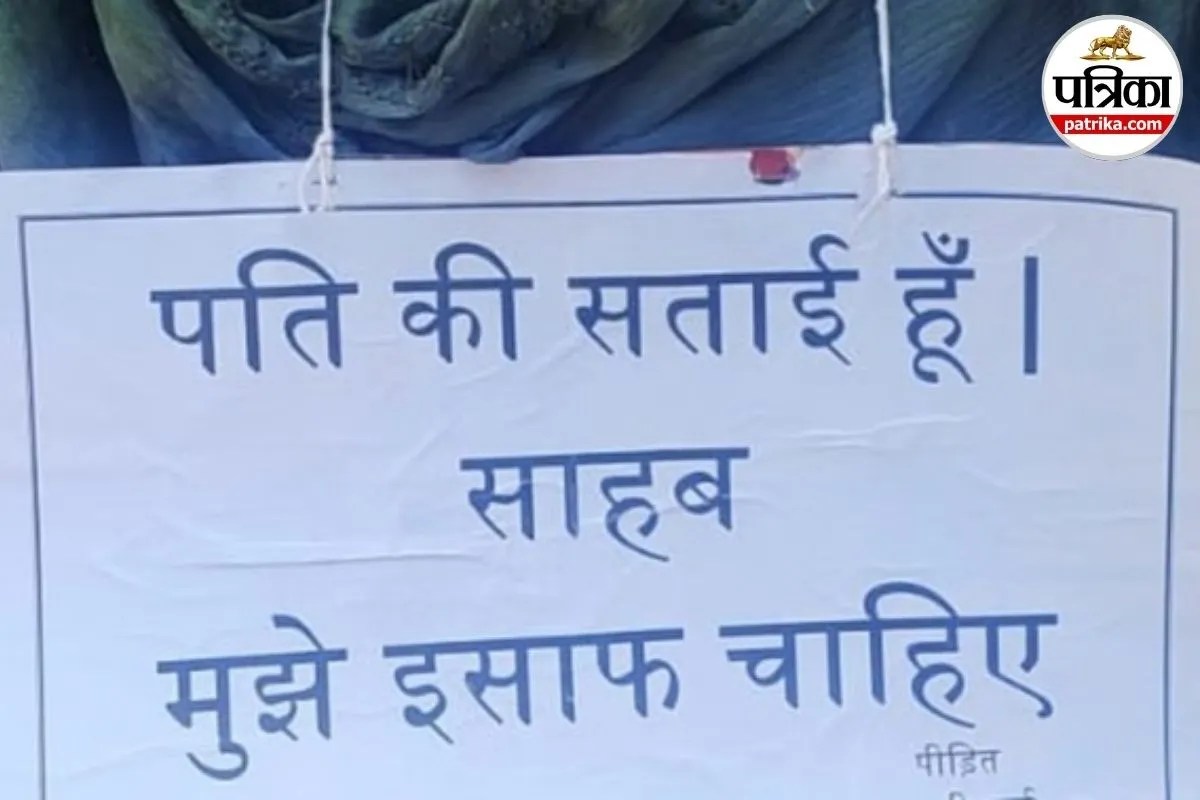 पत्रिका
patrika.com
पति की सताई हूँ |
साहब
मुझे इसाफ चाहिए
पीड़ित